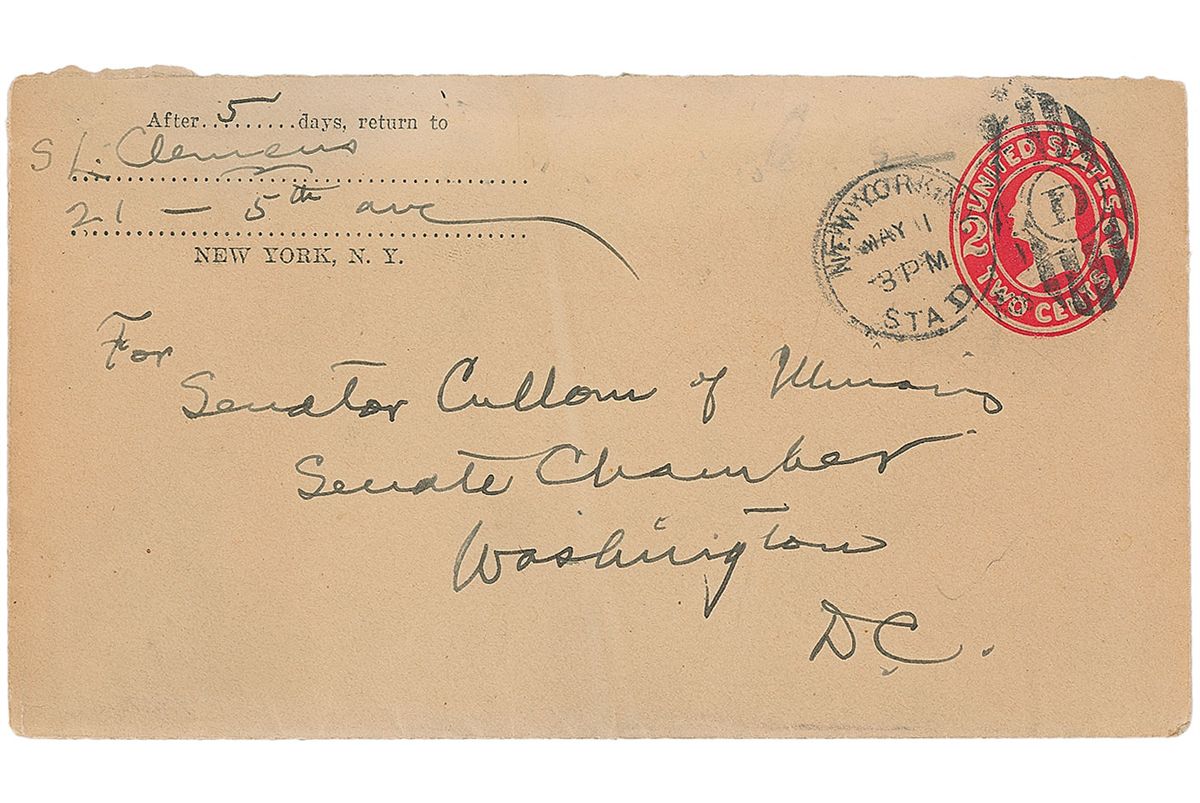 After 5 days, return to
S L. Clemens
21 — 5th ave
NEW YORK, N. Y.
NEW YORK
MAY 11
3 PM
STA D
UNITED STATES
2 2
TWO CENTS
For
Senator Cullom of Illinois
Senate Chamber
Washington
D C.